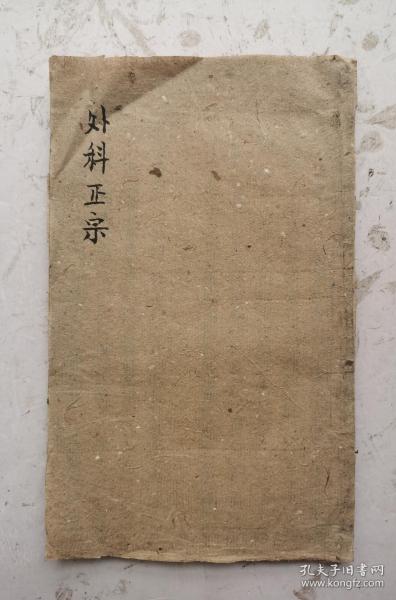 外科正宗
孔夫子旧书网
www.kongfz.com